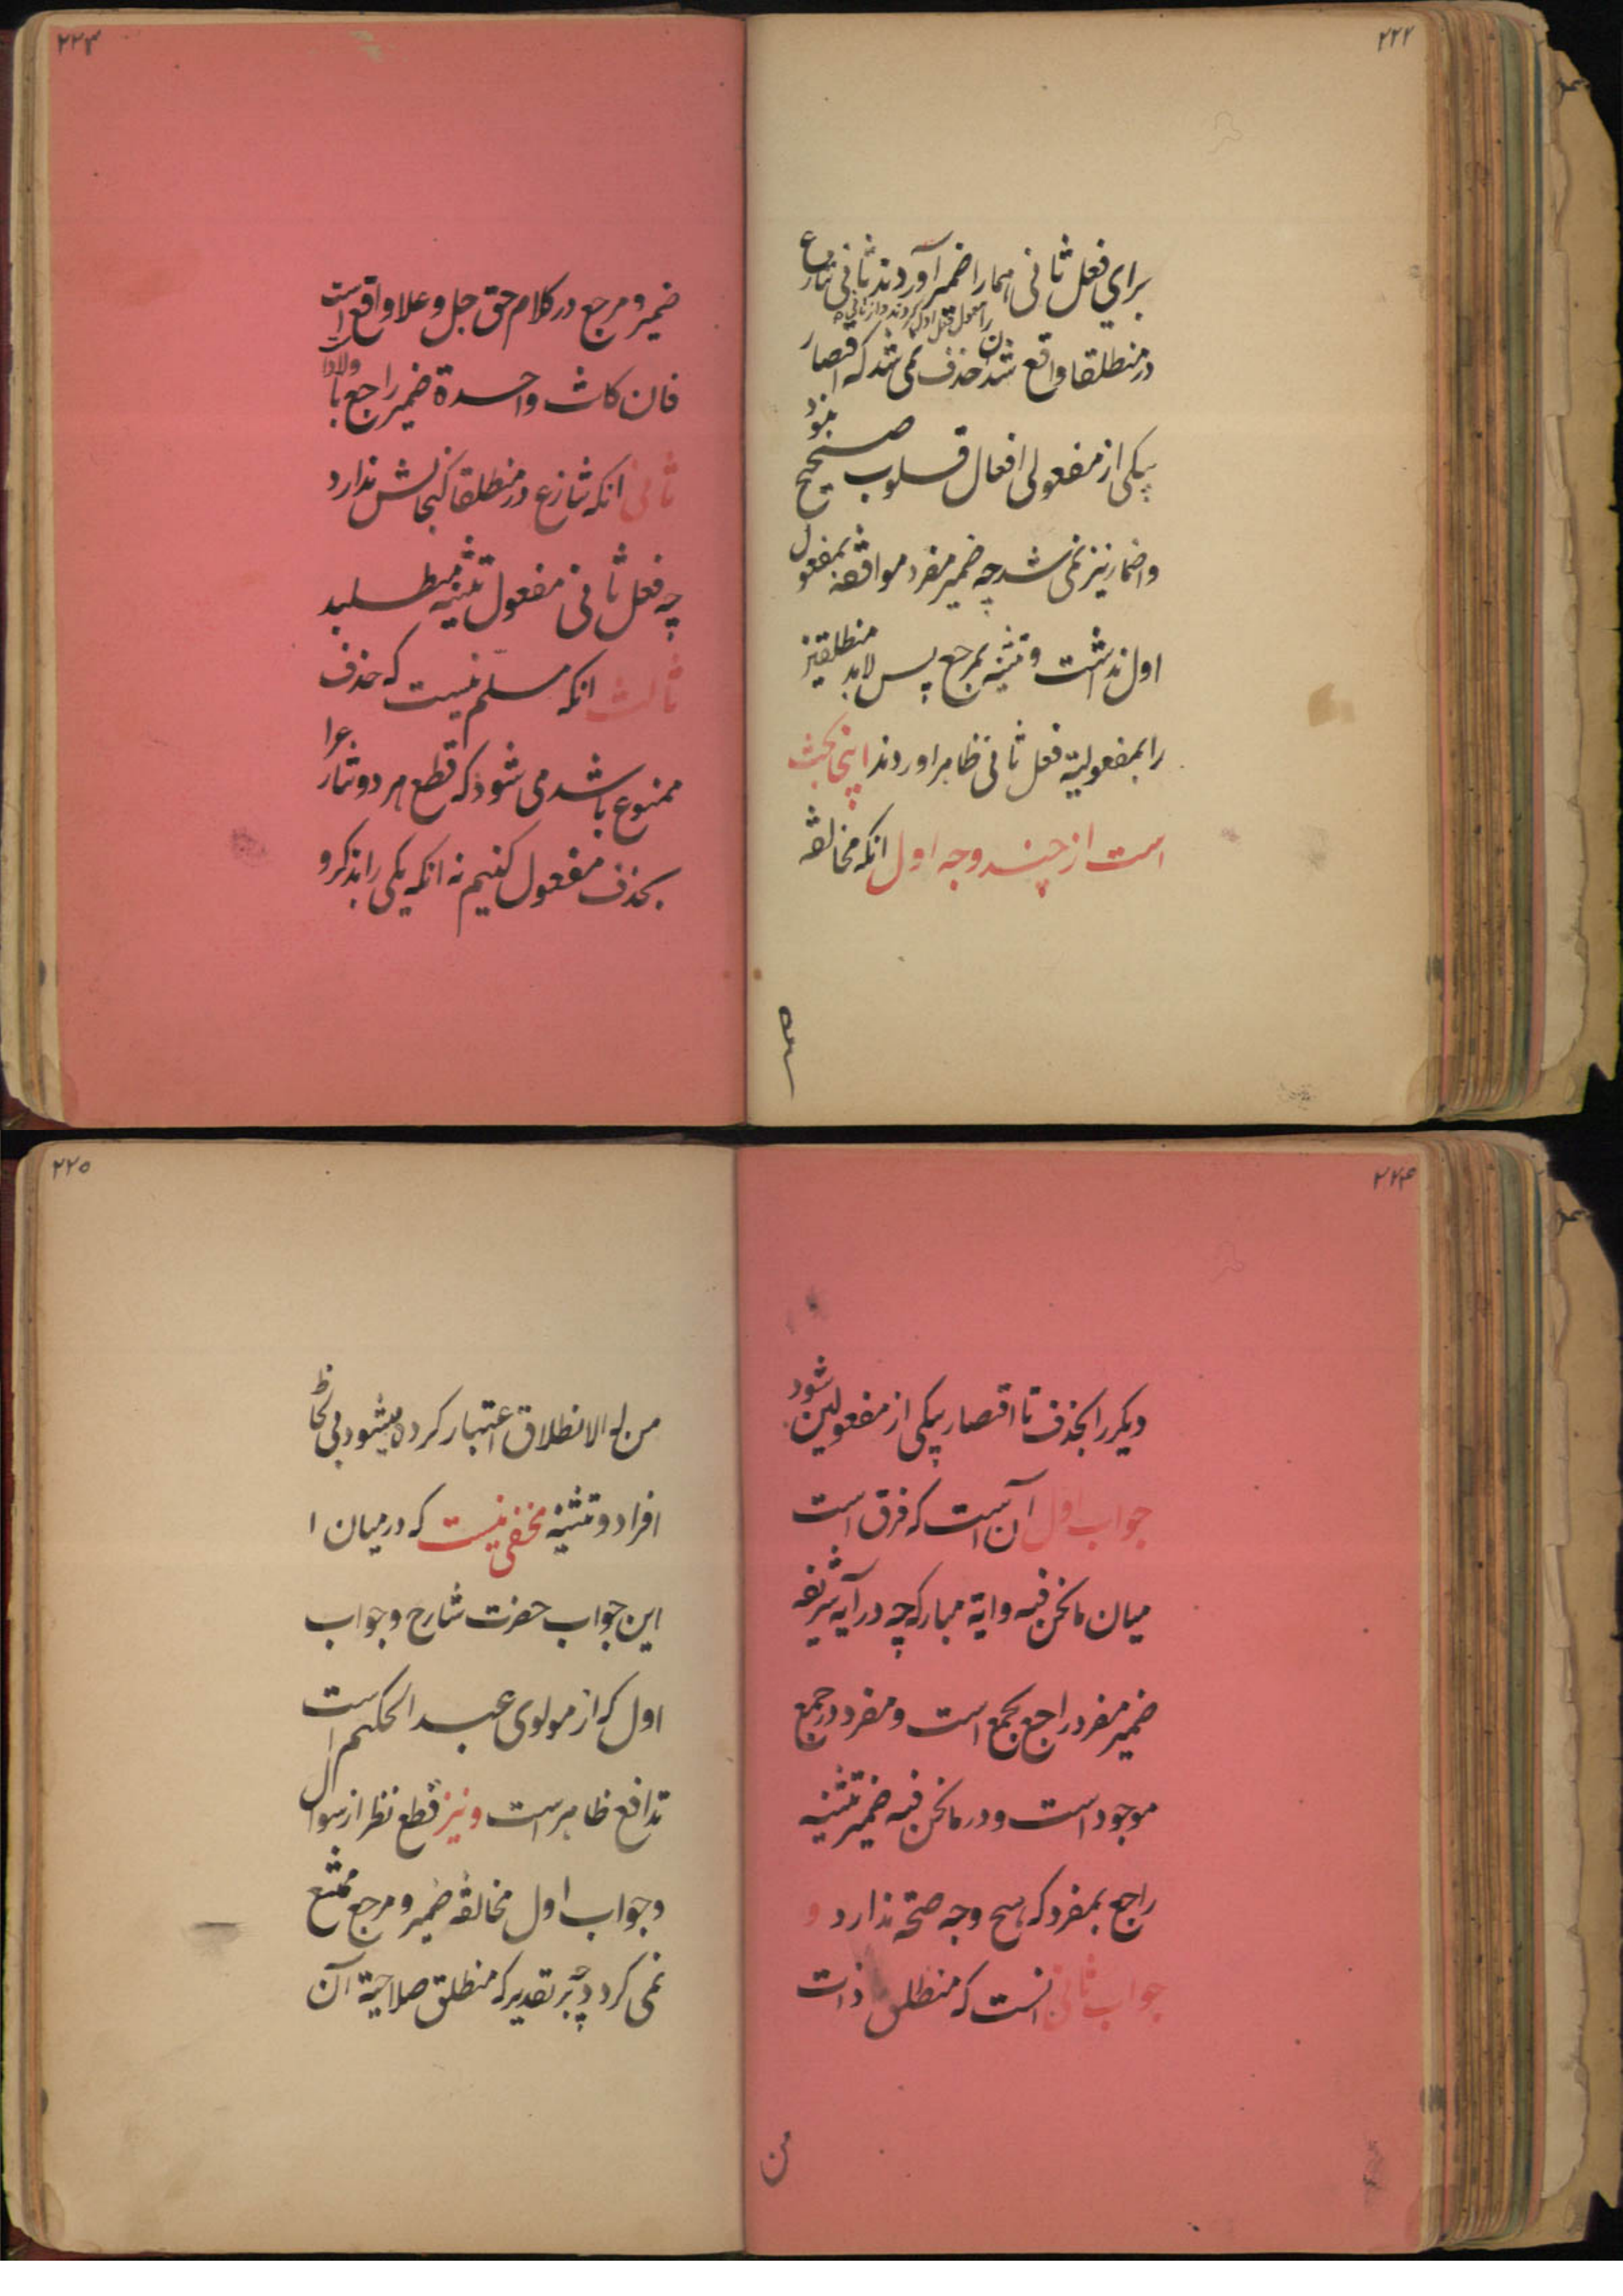 ۲۲۲
برای فعل ثانی هما را ضمیر آوردند ثانی تنازع
را مفعول فعل اول کردند و از ثانی
در منطلقا واقع شد حذف نمی شد که اقتصار
بیکی از مفعولی افعال قلوب صحیح نبود
واضمار نیز نمی شد چه ضمیر مفرد موافقه بمفعول
اول نداشت و تثنیه بمرجع پس لابد منطلقین
را بمفعولیة فعل ثانی ظاهر اوردند اینجا بحث
است از چند وجه اول انکه مخالفه
۲۲۳
ضمیر و مرجع در کلام حق جل و علا واقع است
فان کانت واحدة ضمیر راجع با ولاد است
ثانی انکه تنازع در منطلقا کنجایش ندارد
چه فعل ثانی مفعول تثنیه میطلبد
ثالث انکه مسلم نیست که حذف
ممنوع باشد می شود که قطع هر دو تنازع را
بحذف مفعول کنیم نه انکه یکی را بذکر و
۲۲۴
دیکر را بحذف تا اقتصار بیکی از مفعولین شود
جواب اول آن است که فرق است
میان مانحن فیه و ایة مبارکه چه در آیه شریفه
ضمیر مفرد راجع بجمع است و مفرد در جمع
موجود است و در مانحن فیه ضمیر تثنیه
راجع بمفرد که هیچ وجه صحة ندارد و
جواب ثانی انست که منطلق ذات
من
۲۲۵
من له الانطلاق اعتبار کرده میشود بی لحاظ
افراد و تثنیه مخفی نیست که درمیان ا
این جواب حضرت شارح و جواب
اول که از مولوی عبد الحکیم است
تدافع ظاهر است و نیز قطع نظر از سوال
و جواب اول مخالفة ضمیر و مرجع ممتنع
نمی کردد چه بر تقدیر که منطلق صلاحیة آن